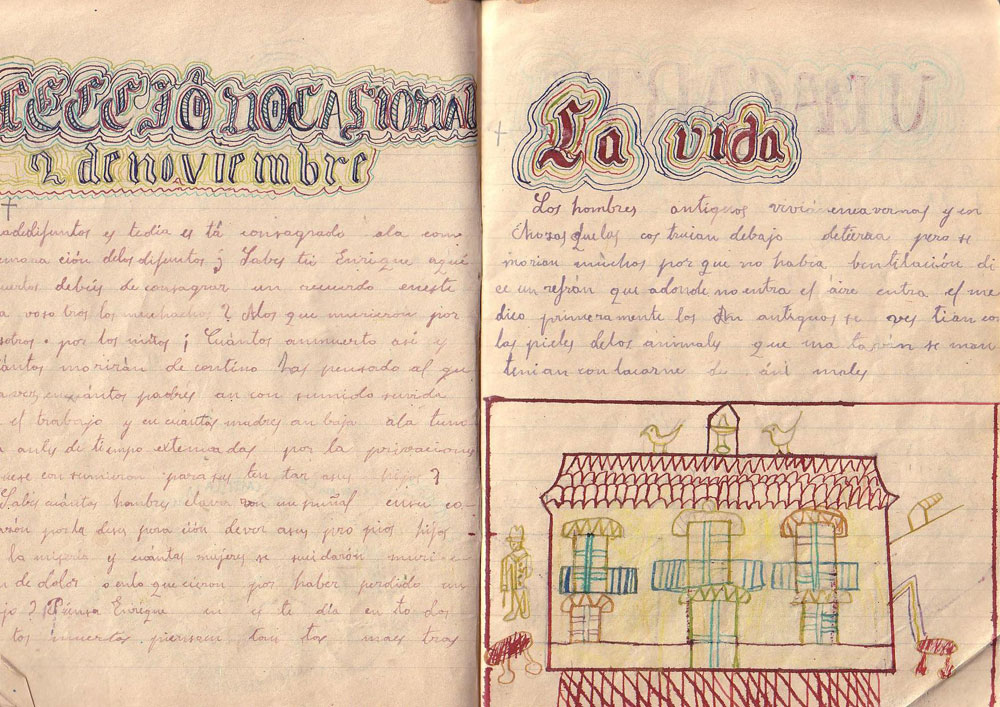 LECCIÓN OCASIONAL
2 de noviembre
adedifuntos es tedia es tá consagrado ala con
emora ción delos difuntos ¿ Sabes tú Enrique aqué
uertos debéis de consagrar un recuerdo eneste
a vosotros los muchachos? Alos que murieron por
sotros. por los niños ¡ Cuántos anmuerto así y
ántos morirán de contino has pensado al gu
avez en cuántos padres an con sumido suvida
el trabajo y en cuántas madres an bajo ala tum
a antes de tiempo extenuadas por la privaciones
uese consumieron para sus ten tar asus hijos?
Sabes cuántos hombres clava ron un puñal ensu co-
razón porla deses peración dever asus pro pios hijos
la miseria y cuántas mujeres se suicidarón muri e-
n de dolor o enlo que cieron por haber perdido un
jo? Piensa Enrique en es te día en to dos
tos muertos piensen tan tos maes tras
La vida
Los hombres antiguos vivió encavernas y en
chozas quelas cos truian debajo detierra pero se
morian muchos por que no habia bentilación di
ce un refrán que adonde no entra el aire entra el me
dico primeramente los An antiguos se ves tian con
las pieles delos animales que ma taván se man
tenian con lacarne de áni males